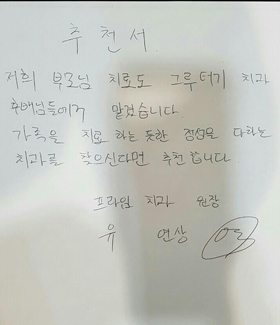 추천서.
저희 부모님 치료도 그루터기 치과
후배님들에게 맡겼습니다
가족을 치료 하는 듯한 정성을 다하는
치과를 찾으신다면 추천 합니다.
프라임 치과 원장
유 연상